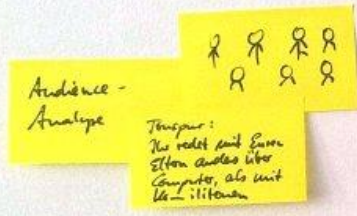 Audience -
Analyse
Tonspur:
Ihr redet mit Euren
Eltern anders über
Computer, als mit
Kommilitonen